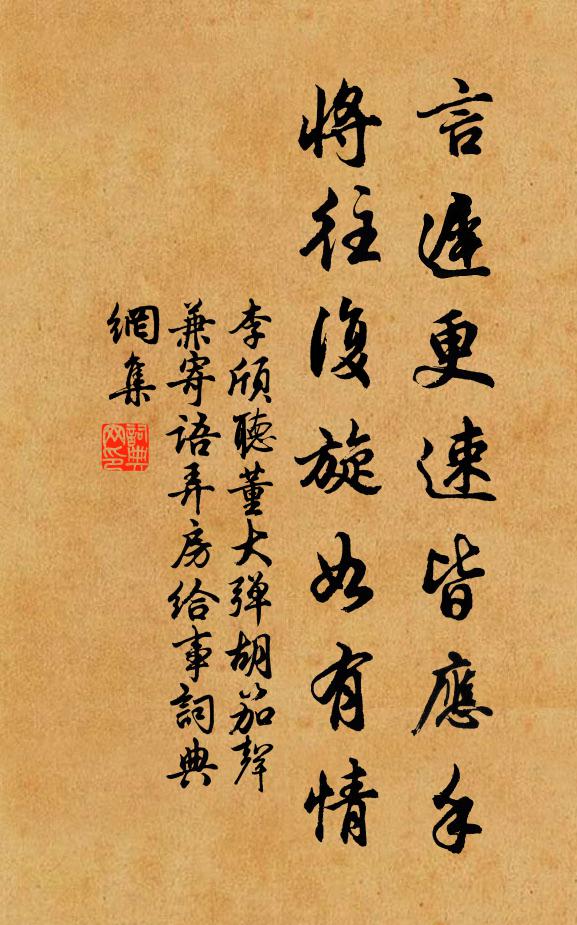 言遲更速皆應手
將往復旋如有情
李頎聽董大彈胡笳聲
兼寄語弄房給事詞典
網集
詞典網印